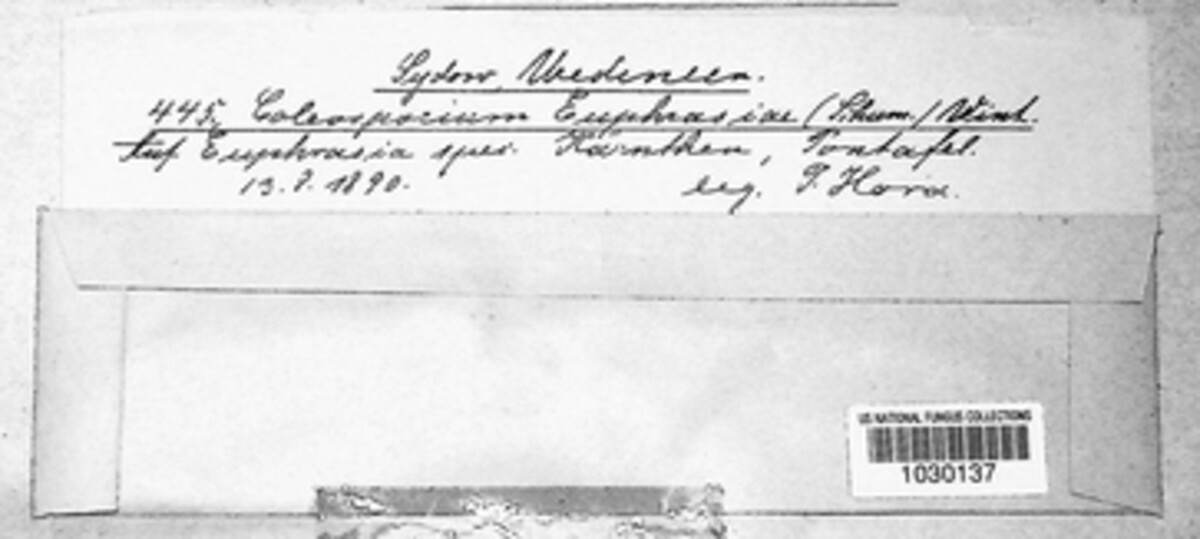 Sydow, Uredineen.
445. Coleosporium Euphrasiae (Schum.) Wint.
Auf Euphrasia spec. Kärnthen, Pontafel.
13. 8. 1890. leg. P. Hora.
US NATIONAL FUNGUS COLLECTIONS
1030137